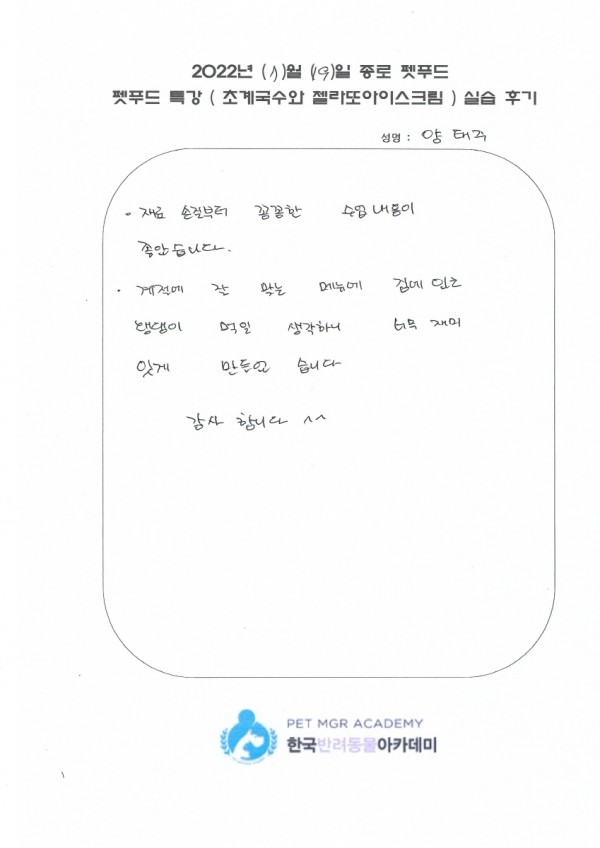 2022년 (1)월 (19)일 종로 펫푸드
펫푸드 특강 ( 초계국수와 젤라또아이스크림 ) 실습 후기
성명 : 양태주
• 재료 손질부터 꼼꼼한 수업내용이
좋았습니다.
• 계절에 잘 맞는 메뉴에 집에
댕댕이 먹일 생각하니 너무 재미
있게 만들었습니다
감사 합니다 ^^
PET MGR ACADEMY
한국반려동물아카데미